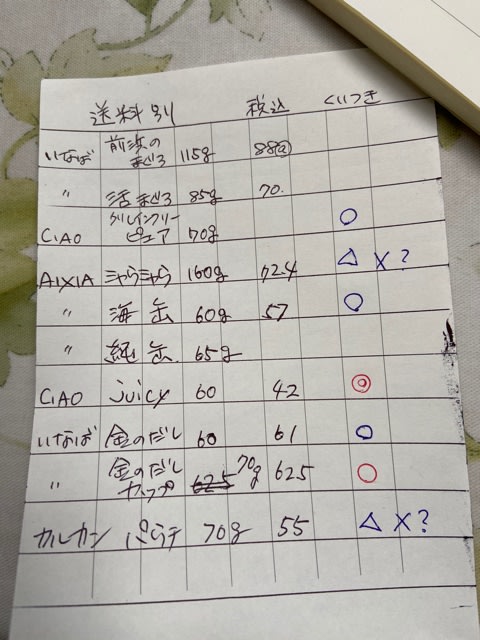 送料別 税込 くいつき
いなば 前浜の まぐろ 115g 88@
〃 活まぐろ 85g 70.
CIAO グレインフリー ピュア 70g ○
AIXIA ミャウミャウ 160g 124 △ ×?
〃 海缶 60g 57 ○
〃 純缶. 65g
CIAO juicy 60 42 ◎
いなば 金のだし 60 61 ○
〃 金のだし カップ 70g 625 ○
カルカン パウチ 70g 55 △ ×?